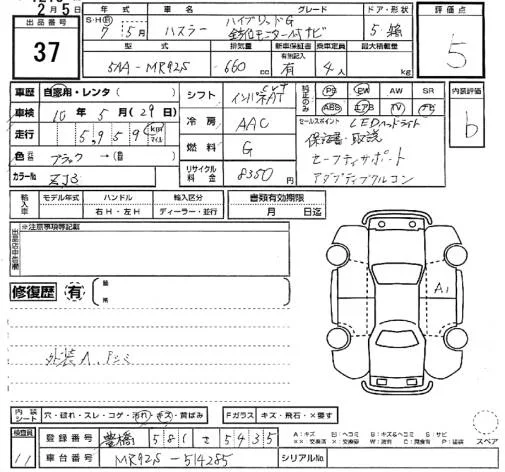 2月5日
出品番号
37
年式 車名 グレード ドア・形状
S・H・R 7年 5月 ハスラー ハイブリッドG 5 編
全方位モニター付ナビ
型式 排気量 新車保証書 乗車定員 最大積載量
有無記入
5AA-MR92S 660 cc 有 4人 kg
評価点
5
車歴 自家用・レンタ( )
車検 10年5月(29日)
走行 5,959 km マイル
色 ブラック→( )
カラーNo ZJ3
シフト インパネAT
冷房 AAC
燃料 G
リサイクル料金 8350円
純正品のみ PS PW AW SR
ABS エアB TV ナビ
セールスポイント LEDヘッドライト
保証書・取説
セーフティサポート
アダプティブクルコン
内装評価
b
輸入車 モデル年式 ハンドル 輸入区分 書類有効期限
右H・左H ディーラー・並行 月 日迄
出品店申告欄
※注意事項等記載
修復歴 有
箇所
外装A,
A1
内装シート 穴・破れ・スレ・コゲ・汚れ・キズ・黄ばみ Fガラス キズ・飛石・×要す
検査員
11
登録番号 豊橋 581 せ 5435
車台No. MR92S-514285 シリアルNo.
A:キズ B:ヘコミ S:サビ
スペア